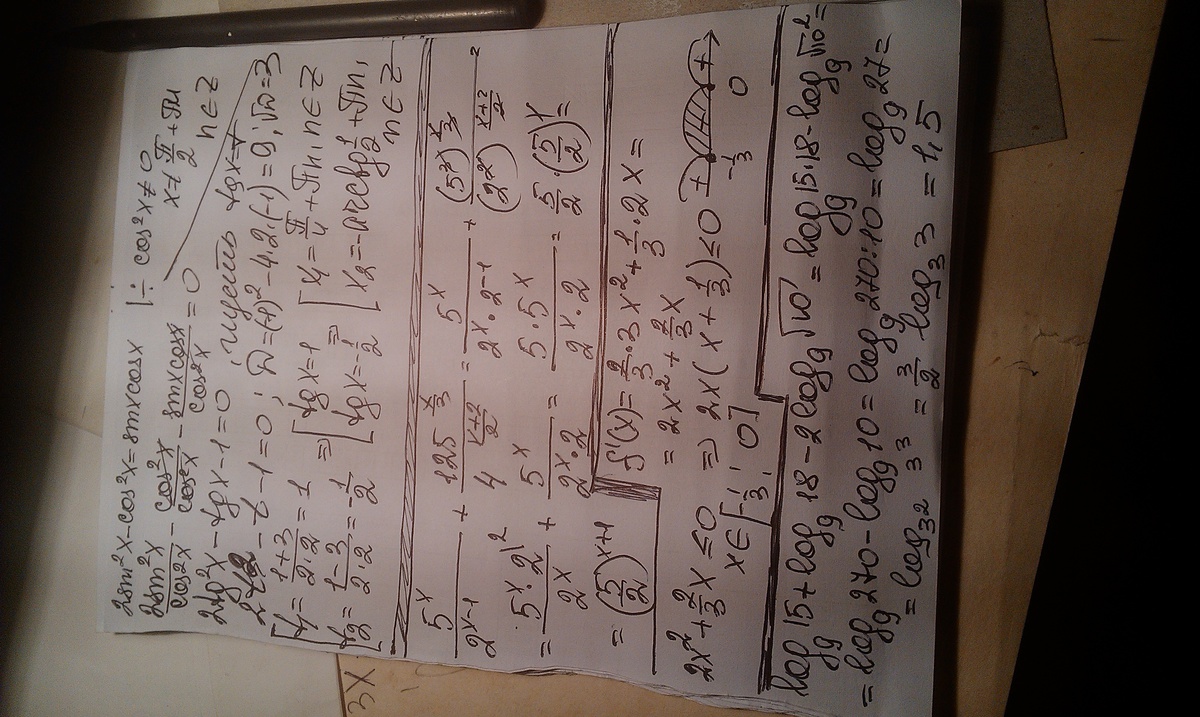 2sin²x-cos²x=sinxcosx |÷ cos²x≠0
x≠π/2+πn
n∈Z
2sin²x/cos²x - cos²x/cos²x - sinxcosx/cos²x = 0
2tg²x-tgx-1=0, пусть tgx=t
2t²-t-1=0; D=(-1)²-4·2·(-1)=9; √D=3
[t₁=(1+3)/(2·2)=1 ⇒ [tgx=1 ⇒ [x₁=π/4+πn, n∈Z
[t₂=(1-3)/(2·2)=-1/2 [tgx=-1/2 [x₂=-arctg 1/2+πn,
n∈Z
5^x/2^(x-1) + 125^(x/3)/4^((x+2)/2) = 5^x/(2^x·2^(-1)) + (5³)^(x/3)/(2²)^((x+2)/2) =
= 5^x·2/2^x + 5^x/(2^x·2²) = 5·5^x/(2^x·2) = 5/2·(5/2)^x =
= (5/2)^(x+1)
f'(x)=2/3·3x²+1/3·2x=
=2x²+2/3x
2x²+2/3x≤0 ⇒ 2x(x+1/3)≤0 + - +
-1/3 0
x∈[-1/3; 0]
log₉15+log₉18-2log₉√10=log₉15·18-log₉√10²=
=log₉270-log₉10=log₉270:10=log₉27=
=log_(3²)3³=3/2log₃3=1,5
3x